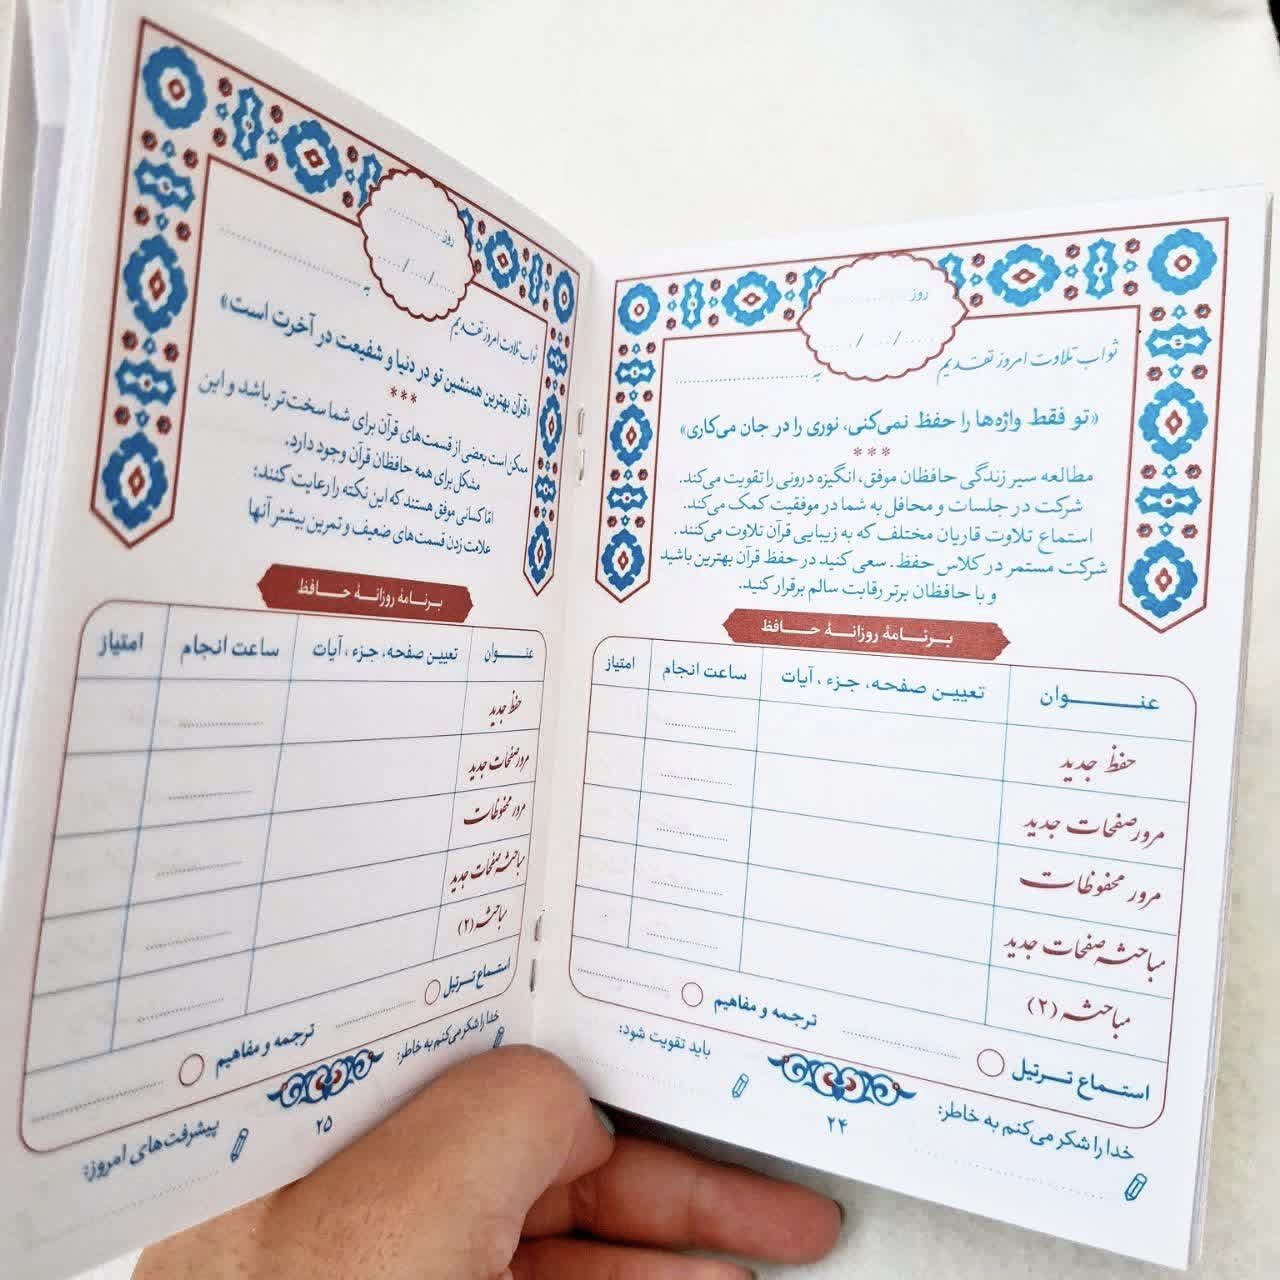 روز ....................
...... / .... / ......
ثواب تلاوت امروز تقدیم
به ................................
«تو فقط واژه‌ها را حفظ نمی‌کنی، نوری را در جان می‌کاری»
***
مطالعه سیر زندگی حافظان موفق، انگیزه درونی را تقویت می‌کند.
شرکت در جلسات و محافل به شما در موفقیت کمک می‌کند.
استماع تلاوت قاریان مختلف که به زیبایی قرآن تلاوت می‌کنند.
شرکت مستمر در کلاس حفظ. سعی کنید در حفظ قرآن بهترین باشید
و با حافظان برتر رقابت سالم برقرار کنید.
برنامهٔ روزانهٔ حافظ
عنوان تعیین صفحه، جزء، آیات ساعت انجام امتیاز
حفظ جدید
مرور صفحات جدید
مرور محفوظات
مباحثه صفحات جدید
مباحثه (۲)
استماع ترتیل ترجمه و مفاهیم
خدا را شکر می‌کنم به خاطر: باید تقویت شود:
۲۴
روز ....................
...... / .... / ......
ثواب تلاوت امروز تقدیم
به ................................
«قرآن بهترین همنشین تو در دنیا و شفیعت در آخرت است»
***
ممکن است بعضی از قسمت‌های قرآن برای شما سخت‌تر باشد و این
مشکل برای همه حافظان قرآن وجود دارد.
امّا کسانی موفق هستند که این نکته را رعایت کنند:
علامت زدن قسمت‌های ضعیف و تمرین بیشتر آنها
برنامهٔ روزانهٔ حافظ
عنوان تعیین صفحه، جزء، آیات ساعت انجام امتیاز
حفظ جدید
مرور صفحات جدید
مرور محفوظات
مباحثه صفحات جدید
مباحثه (۲)
استماع ترتیل ترجمه و مفاهیم
خدا را شکر می‌کنم به خاطر: پیشرفت‌های امروز:
۲۵